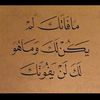 ما فاتك لم
يكن لك وما هو
لك لن يفوتك